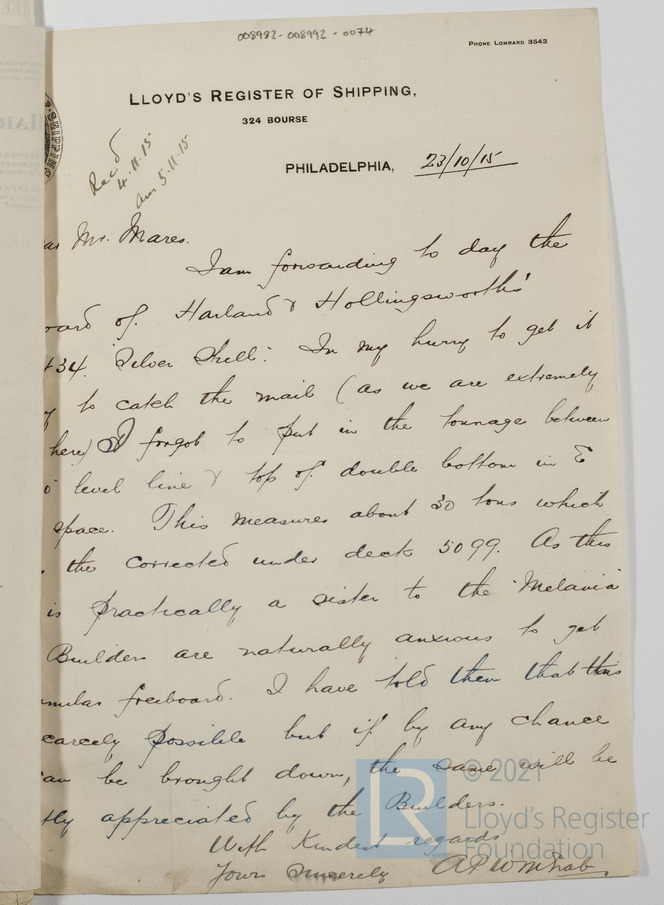 008982-008992-0074
PHONE LOMBARD 3543
LLOYD'S REGISTER OF SHIPPING,
324 BOURSE
Recd
4.11.15
Ans 5.11.15
PHILADELPHIA, 23/10/15
ar Mr. Mares.
I am forwarding to day the
oard of Harland & Hollingsworth's
434. "Silver Shell". In my hurry to get it
y to catch the mail (as we are extremely
here) I forgot to put in the tonnage between
level line & top of double bottom in E
space. This measures about 30 tons which
the corrected under deck 5099. As this
is practically a sister to the "Melania"
Builders are naturally anxious to get
milar freeboard. I have told them that this
carcely possible but if by any chance
an be brought down, the same will be
tly appreciated by the Builders.
With Kindest regards
Yours Sincerely
© 2021
Lloyd's Register
Foundation